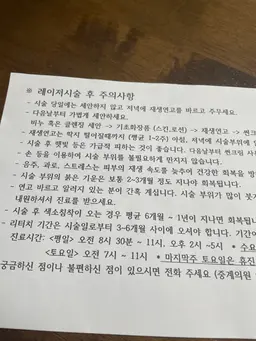 ※ 레이저시술 후 주의사항
- 시술 당일에는 세안하지 않고 저녁에 재생연고를 바르고 주무세요.
- 다음날부터 가볍게 세안하세요.
비누 혹은 클렌징 세안 -> 기초화장품 (스킨,로션) -> 재생연고 -> 썬크
- 재생연고는 딱지 떨어질때까지 (평균 1-2주) 아침, 저녁에 시술부위에
- 시술 후 햇빛 등은 가급적 피하는 것이 좋습니다. 다음날부터 썬크림 사
- 손 등을 이용하여 시술 부위를 불필요하게 만지지 않습니다.
- 음주, 과로, 스트레스는 피부의 재생 속도를 늦추어 건강한 회복을 방
- 시술 부위의 붉은 기운은 보통 2~3개월 정도 지나야 회복됩니다.
- 연고 바르고 알러지 있는 분이 간혹 계십니다. 시술 부위가 많이 붓거
내원하셔서 진료를 받으세요.
- 시술 후 색소침착이 오는 경우 평균 6개월 ~ 1년이 지나면 회복됩니
- 리터치 기간은 시술일로부터 3~6개월 사이에 오셔야 합니다. 기간이
진료시간: <평일> 오전 8시 30분 ~ 11시, 오후 2시 ~5시 * 수요
<토요일> 오전 7시 ~ 11시 * 마지막주 토요일은 휴진
궁금하신 점이나 불편하신 점이 있으시면 전화 주세요 (중계의원